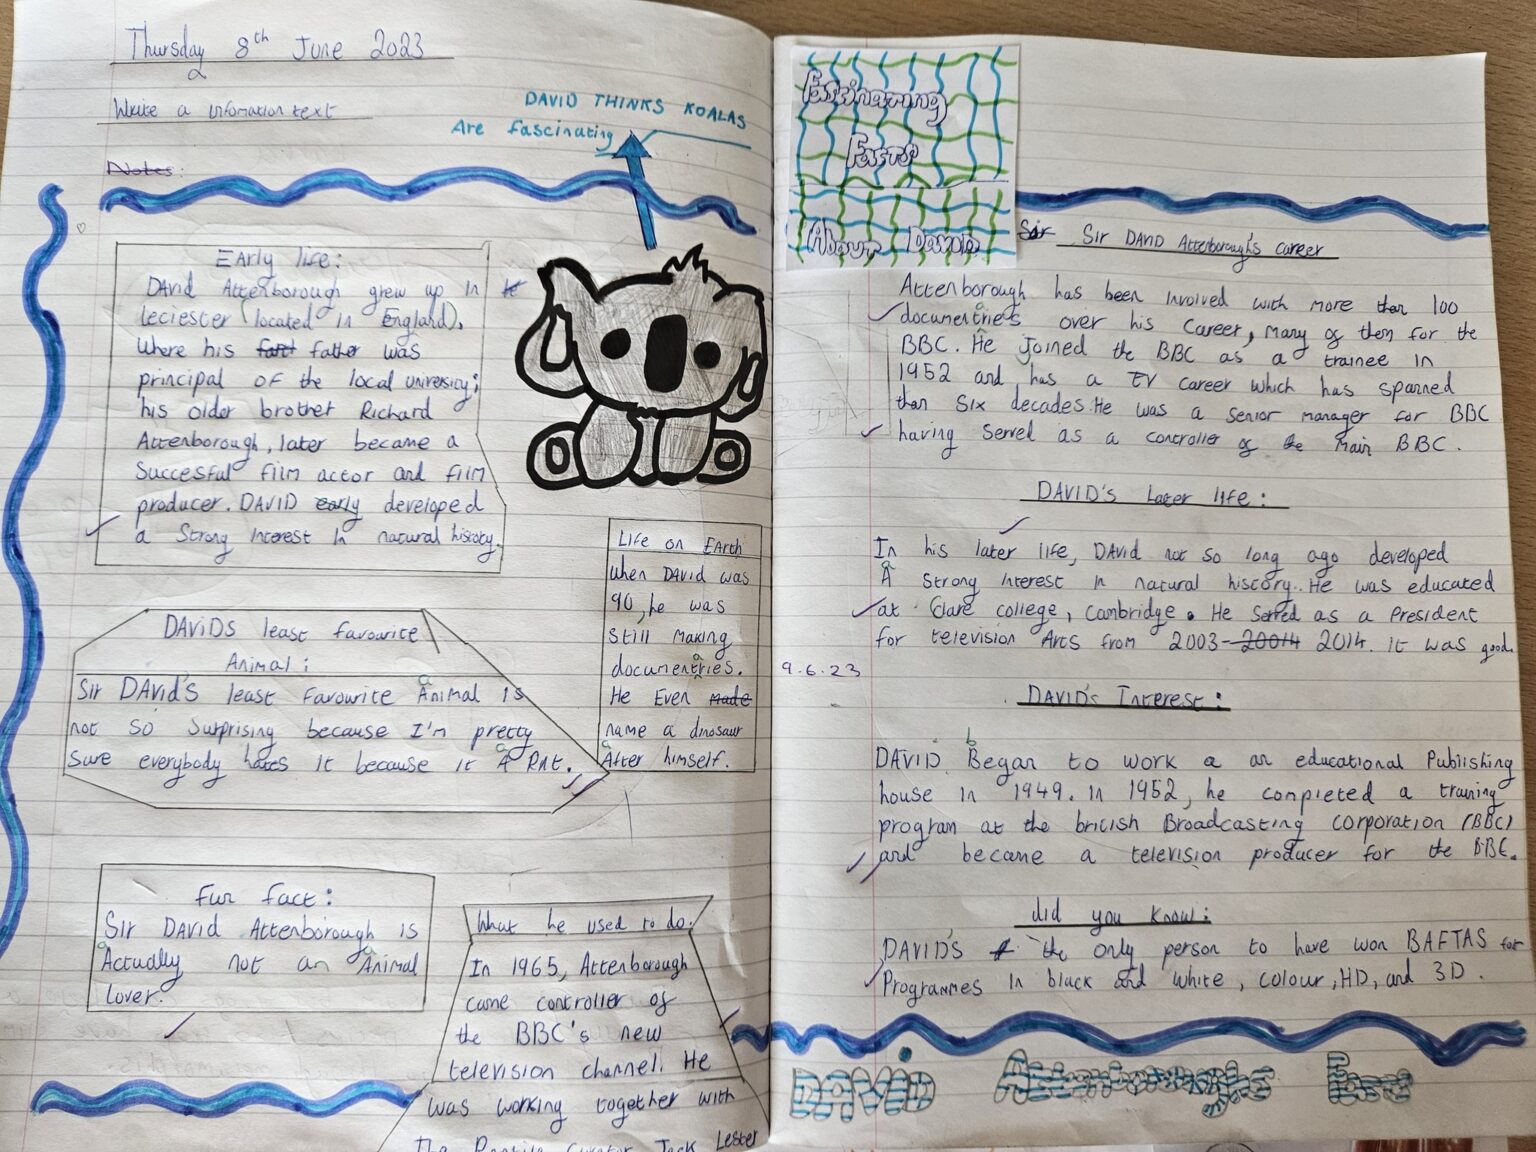 Thursday 8th June 2023
Write a infomation text
Notes:
DAVID THINKS KOALAS
Are fascinating
Early life:
DAVID Attenborough grew up in
Leciester (located in England).
Where his father was
principal of the local university;
his older brother Richard
Attenborough, later became a
succesful film actor and film
producer. DAVID early developed
a strong interest in natural history.
DAViDS least favourite
Animal:
Sir DAVID'S least favourite Animal is
not so surprising because I'm pretty
sure everybody hates it because it A RAt.
Fun fact:
Sir DAVID Attenborough is
Actually not an Animal
lover.
Life on EArth
When DAVID was
90, he was
still making
documentries.
He Even made
name a dinosaur
After himself.
What he used to do.
In 1965, Attenborough
came controller of
the BBC's new
television channel. He
was working together with
Jack Lester
Fascinating
Facts
About David
Sir DAVID Attenborough's career
Attenborough has been involved with more than 100
documentries over his career, many of them for the
BBC. He joined the BBC as a trainee in
1952 and has a TV career which has spanned
than six decades. He was a senior manager for BBC
having served as a controller of the main BBC.
DAVID'S Later life:
In his later life, DAVID not so long ago developed
A strong interest in natural history. He was educated
at Clare college, Cambridge. He served as a President
for television Arts from 2003-20014 2014. it was good.
9.6.23
DAVID'S Interest:
DAVID Began to work a an educational Publishing
house in 1949. in 1952, he completed a training
program at the british Broadcasting corporation (BBC)
and became a television producer for the BBC.
did you know:
DAVID'S the only person to have won BAFTAS for
Programmes in black and white, colour, HD, and 3D.
DAViD Attenboroughs